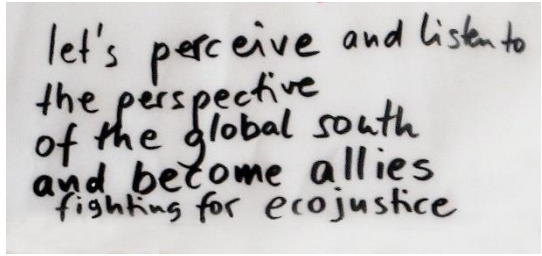 let's perceive and listen to
the perspective
of the global south
and become allies
fighting for ecojustice